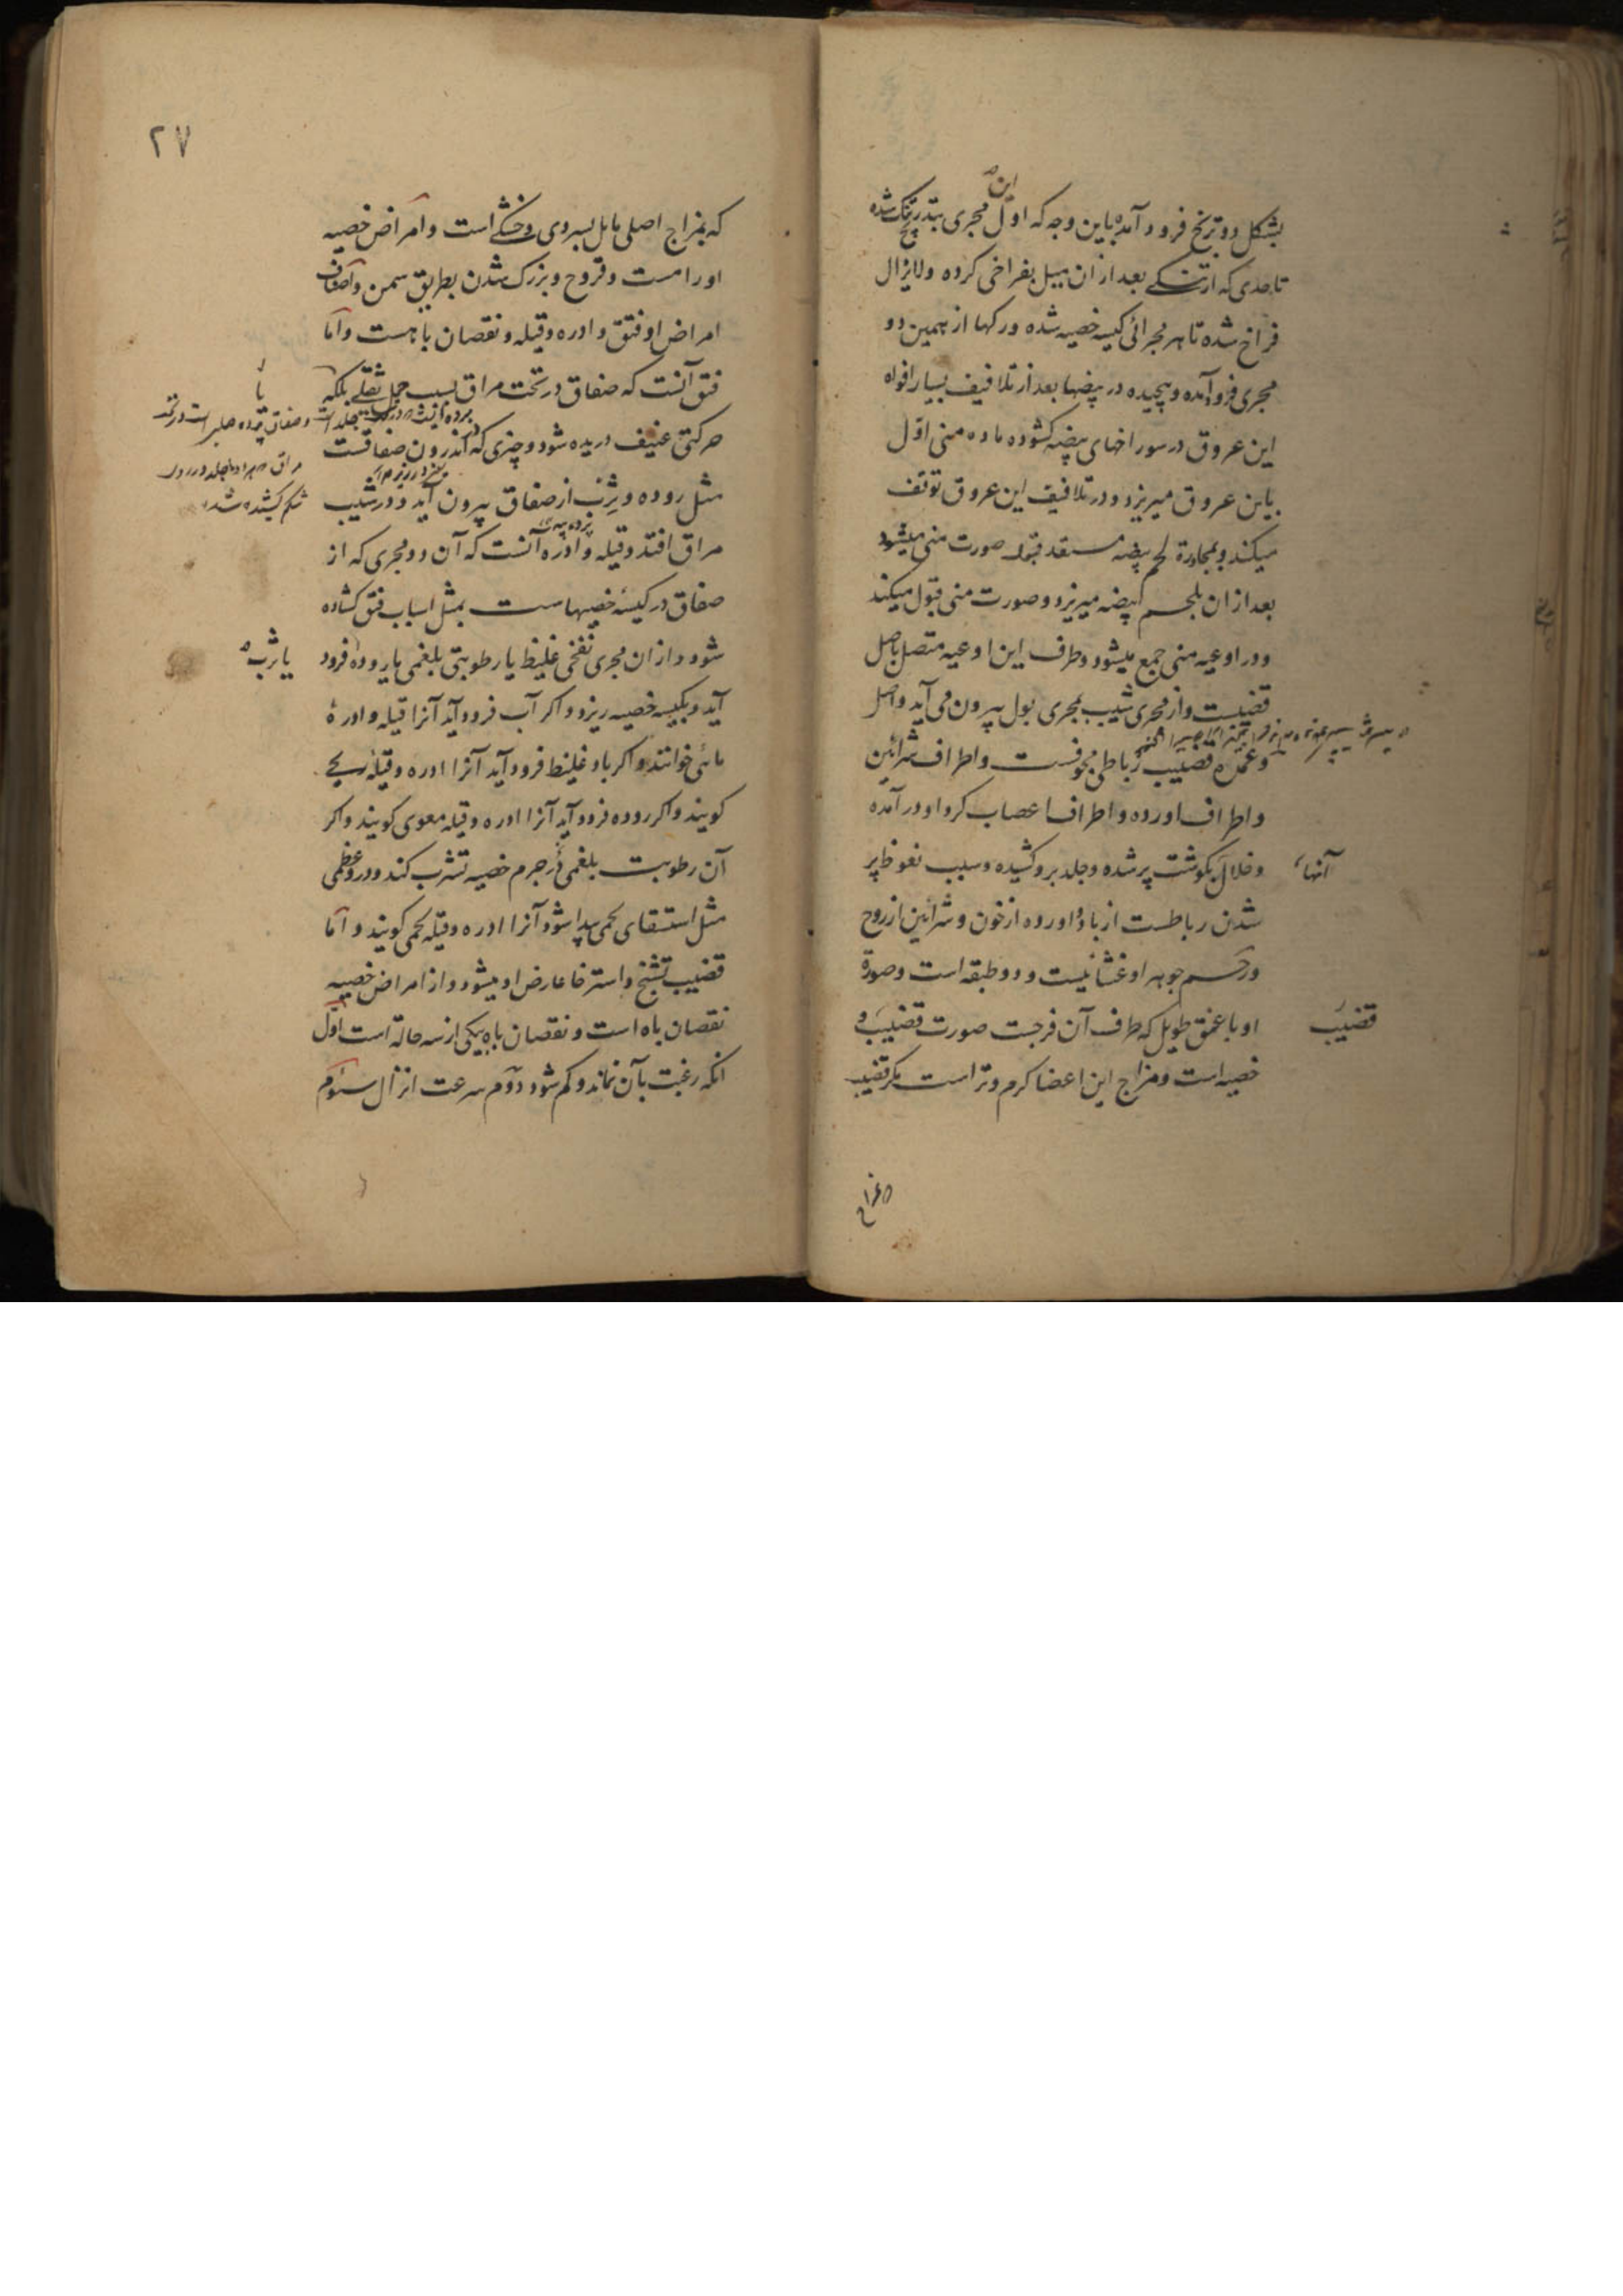 این
بشکل دو بربخ فرود آمده باین وجه که اول مجری بتدریج تنک شده
تا حدی که از تنکے بعد از ان میل بفراخی کرده ولایزال
فراخ شده تا هر مجرائی کیسه خصیه شده و رکها از همین دو
مجری فرو آمده و پیچیده در بیضها بعد از تلافیف بسیار افواه
این عروق در سوراخهای بیضه کشوده ماده منی اول
باین عروق میریزد و در تلافیف این عروق توقف
میکند و بمجاورة لحم بیضه مستعد قبول صورت منی میشود
بعد از ان بلحم بیضه میریزد و صورت منی قبول میکند
و در اوعیه منی جمع میشود و طرف این اوعیه متصل باصل
قضیبست و از مجری شیب بمجری بول بیرون می آید و اصل
و عمده قضیب رباطی مجوفست و اطراف شرائین
و اطراف اورده و اطراف اعصاب کرد او در آمده
و خلال بکوشت پر شده و جلد برو کشیده و سبب نعوظ پر
آنها
شدن رباطست از باد و اورده از خون و شرائین از روح
و رحم جوهر او غشائیست و دو طبقه است و صورة
او با عمق طویل که طرف آن فرجست صورت قضیب و
قضیب
خصیه است و مزاج این اعضا کرم و تر است مکر قضیب
۲۷
که بمزاج اصلی مایل بسردی و خشکے است و امراض خصیه
اورامست و قروح و بزرک شدن بطریق سمن و اصناف
امراض او فتق و ادره و قیله و نقصان باهست و اما
فتق آنست که صفاق در تحت مراق بسبب حمل ثقلے بلکه
یا
حرکتی عنیف دریده شود و چیزی که اندرون صفاقست
مثل روده و ثرب از صفاق بیرون آید و در شیب
شکم کشیده شده
مراق افتد و قیله و ادره آنست که آن دو مجری که از
صفاق در کیسهٔ خصیهاست بمثل اسباب فتق کشاده
شود و از ان مجری نفخی غلیظ یا رطوبتی بلغمی یا روده فرود
یا ثرب
آید و بکیسه خصیه ریزد و اکر آب فرود آید آنرا قیله و ادرهٔ
مائی خوانند و اکر باد غلیظ فرود آید آنرا ادره و قیلهٔ ریحے
کویند و اکر روده فرود آید آنرا ادره و قیله معوی کویند و اکر
آن رطوبت بلغمی در جرم خصیه تشرب کند و درو عظمی
مثل استسقای لحمی پیدا شود آنرا ادره و قیله لحمی کویند و اما
قضیب تشنج و استرخا عارض او میشود و از امراض خصیه
نقصان باه است و نقصان باه یکی از سه حالة است اول
انکه رغبت بآن نماند و کم شود دوم سرعت انزال سئوم